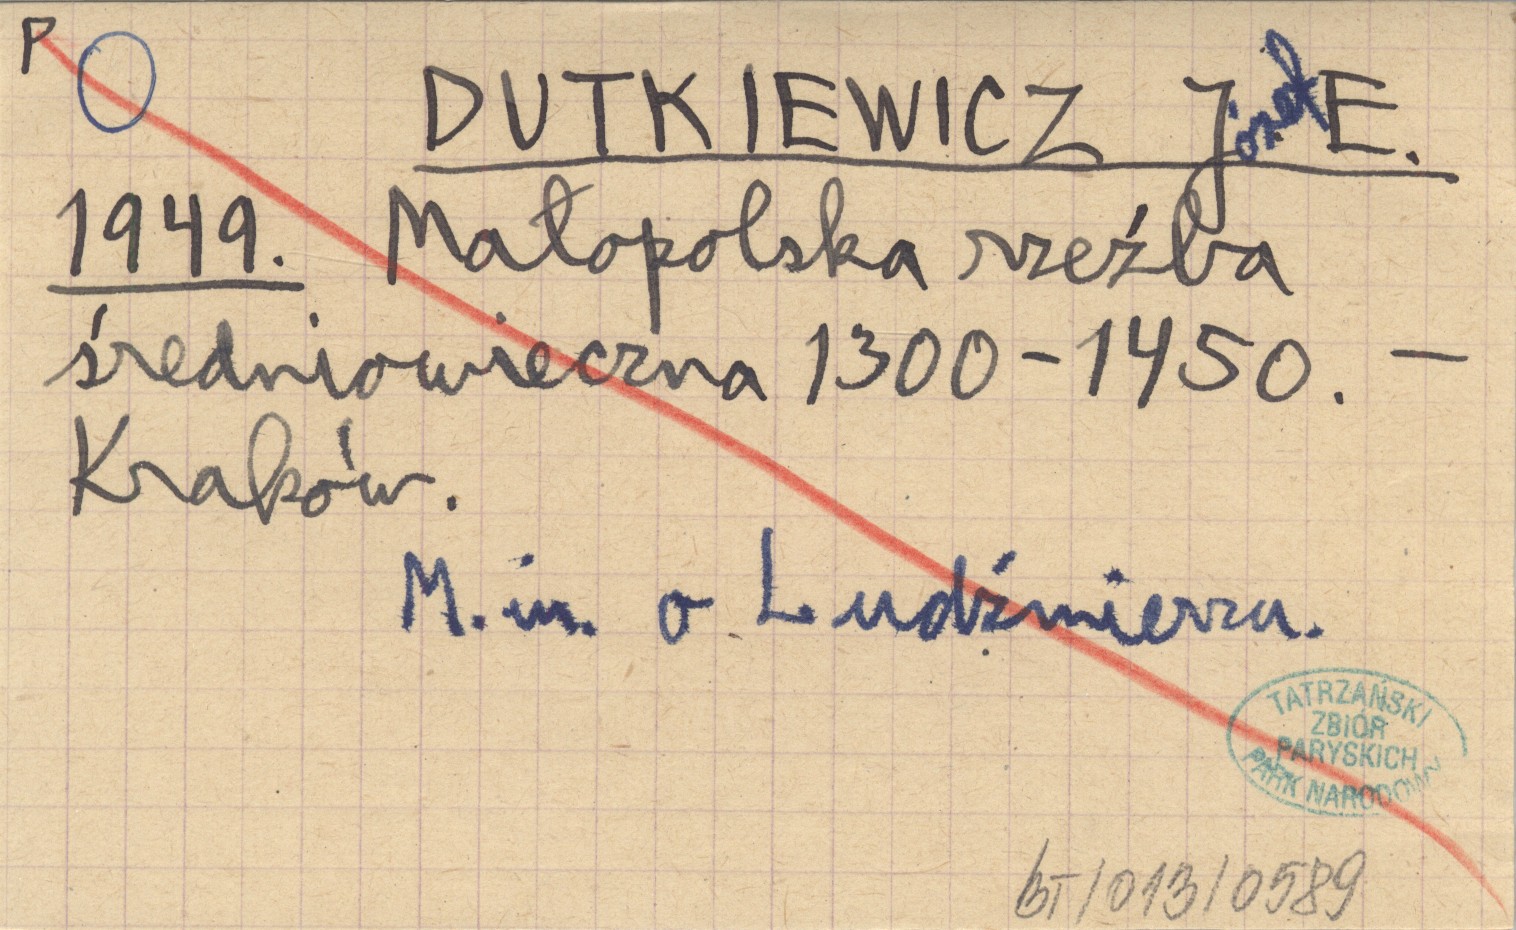 P
DUTKIEWICZ Józef E.
1949. Małopolska rzeźba
średniowieczna 1300-1450. —
Kraków.
M. in. o Ludźmierzu.
TATRZAŃSKI
ZBIÓR
PARYSKICH
PARK NARODOWY
BT/013/0589